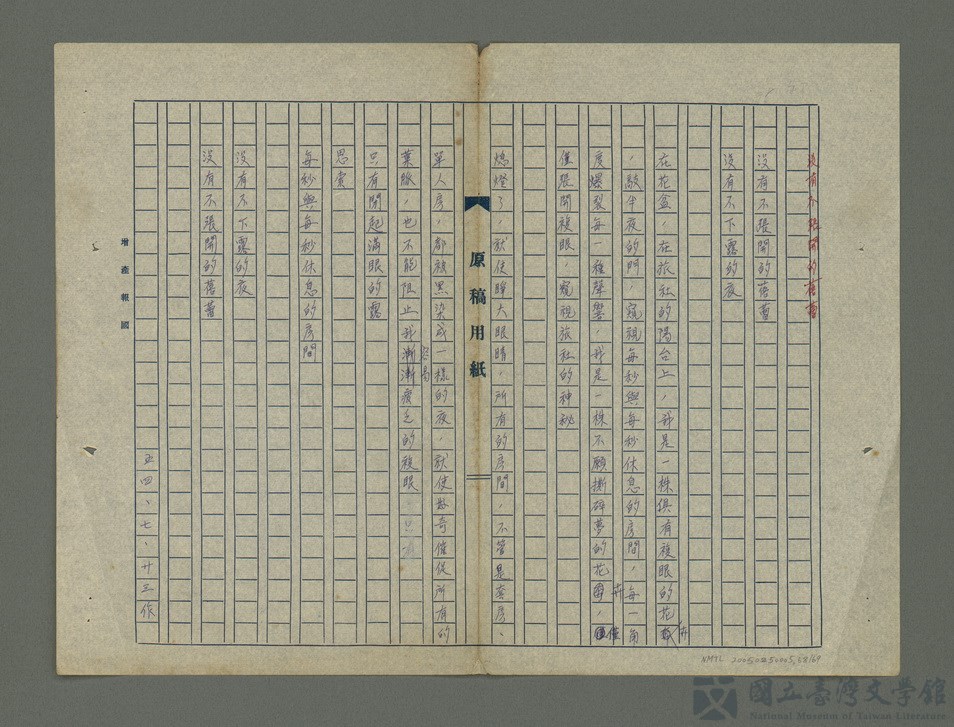 沒有不張開的蓓蕾
沒有不張開的蓓蕾
沒有不下露的夜
在花盒,在旅社的陽台上,我是一株俱有複眼的花卉
,敲半夜的門,窺視每秒與每秒休息的房間,每一角
度爆裂每一種聲響,我是一株不願撕碎夢的花卉,僅
僅張開複眼,窺視旅社的神秘
熄燈了,就使睜大眼睛,所有的房間,不管是套房、
單人房,都被黑染成一樣的夜,就使好奇催促所有的
葉脈,也不能阻止我容易漸漸疲乏的複眼
只有閉起滿眼的露
思索
每秒與每秒休息的房間
沒有不下露的夜
沒有不張開的蓓蕾
五四、七、廿三作
原稿用紙
增產報國
NMTL 20050050005
國立臺灣文學館
National Museum of Taiwan Literature